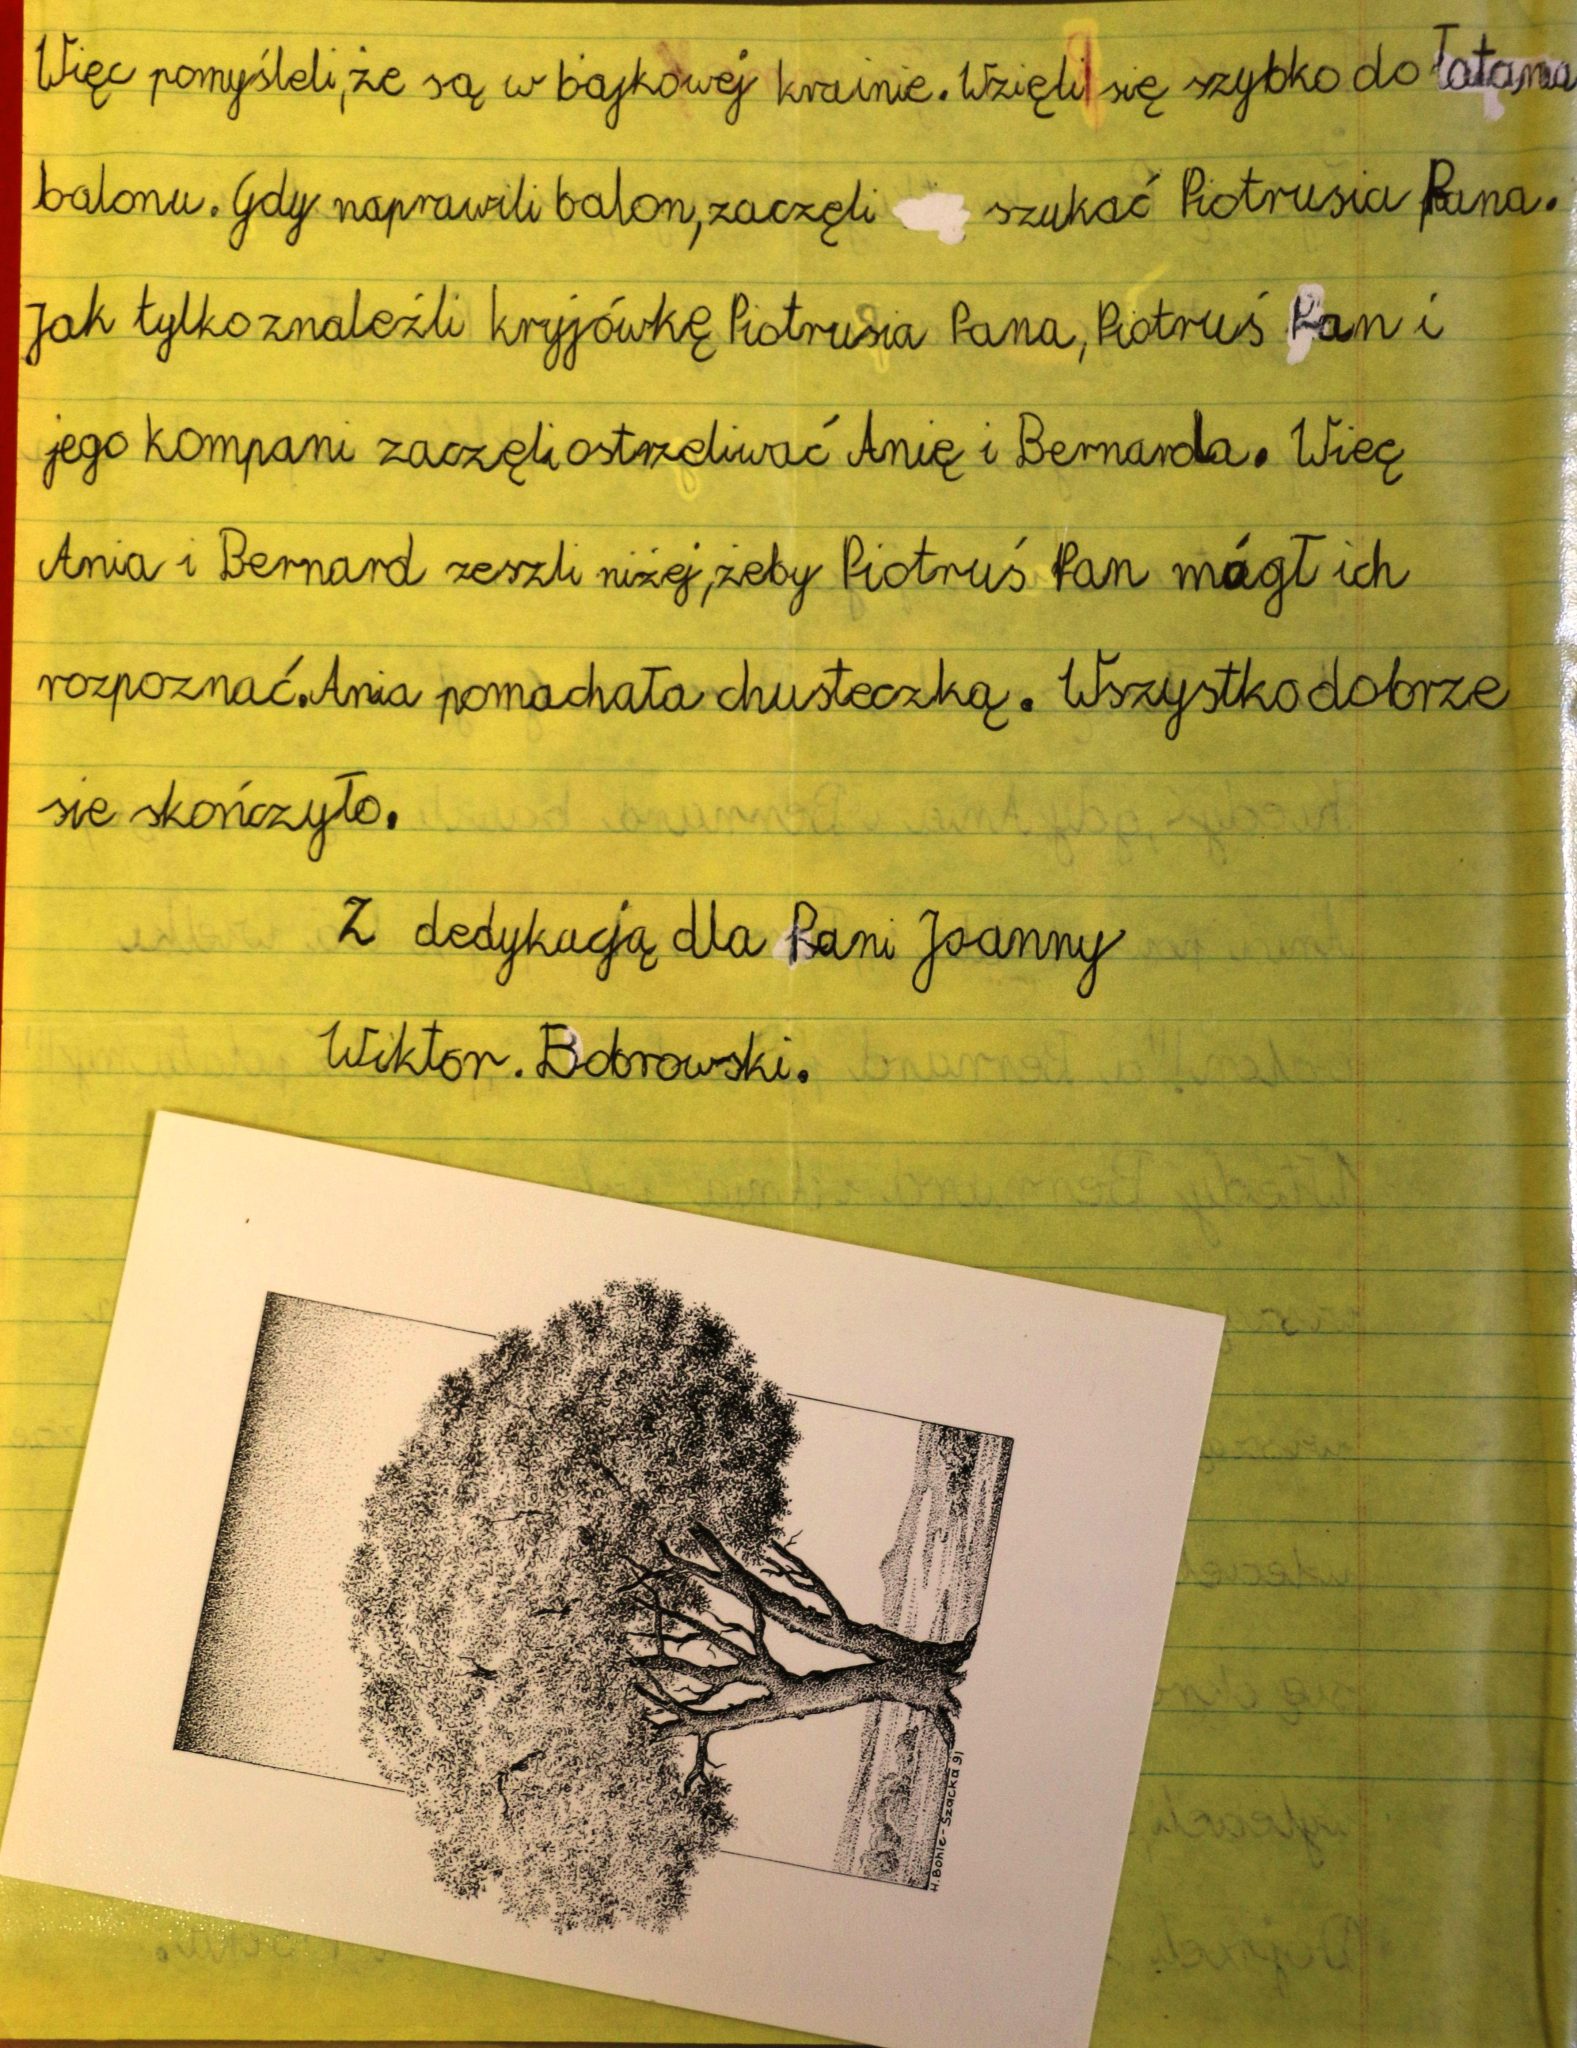 Więc pomyśleli, że są w bajkowej krainie. Wzięli się szybko do łatania
balonu. Gdy naprawili balon, zaczęli szukać Piotrusia Pana.
Jak tylko znaleźli kryjówkę Piotrusia Pana, Piotruś Pan i
jego kompani zaczęli ostrzeliwać Anię i Bernarda. Więc
Ania i Bernard zeszli niżej, żeby Piotruś Pan mógł ich
rozpoznać. Ania pomachała chusteczką. Wszystko dobrze
sie skończyło.
Z dedykacją dla Pani Joanny
Wiktor. Bobrowski.
H. Bohle-Szacka 91